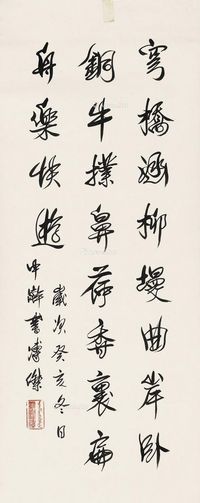 穹橋柳堤曲岸臥
銅牛撲鼻荷香裏扁
舟樂快遊
歲次癸亥冬日
中書溥傑